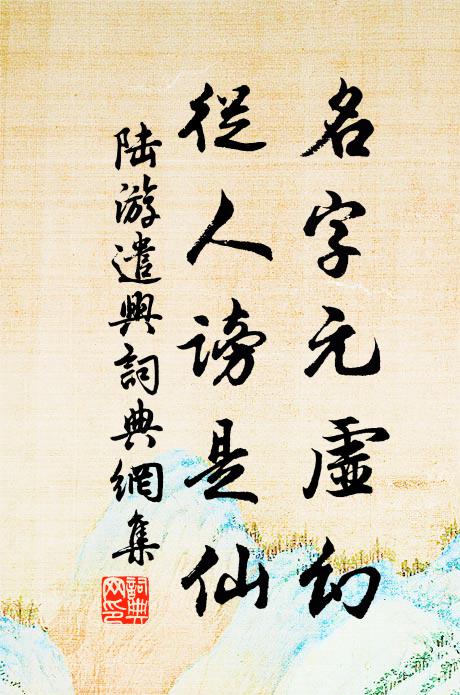 名字元虛幻
從人謗是仙
陸游遣興詞典網集
詞典网印